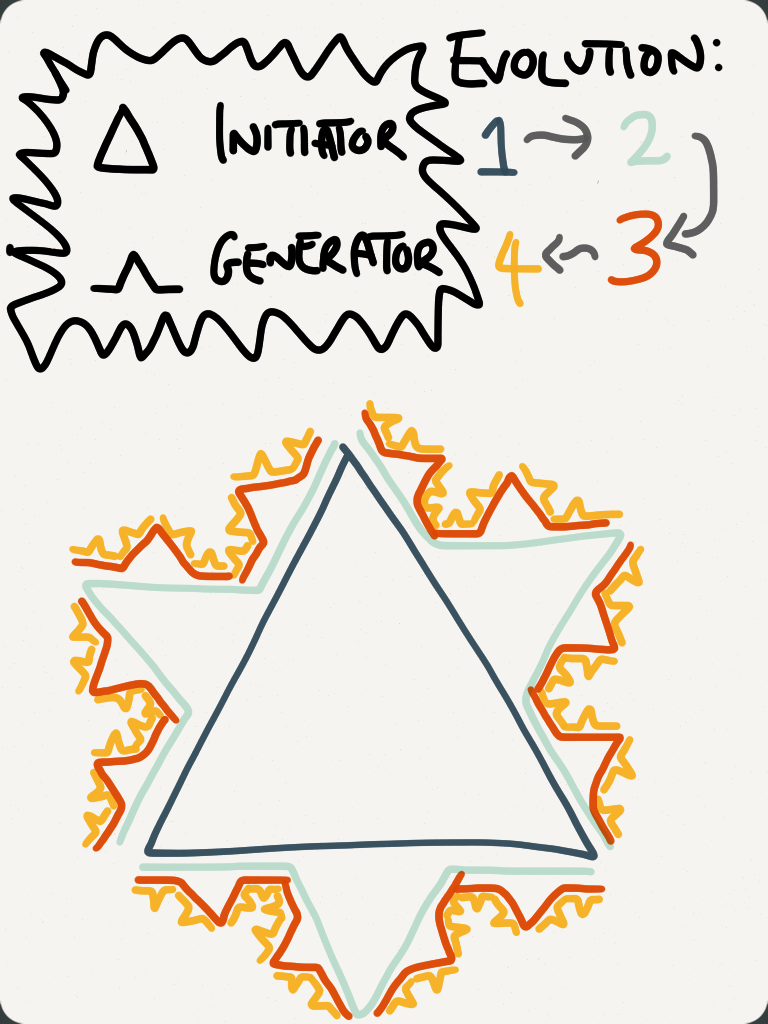 INITIATOR
GENERATOR
EVOLUTION:
1 → 2
4 ← 3